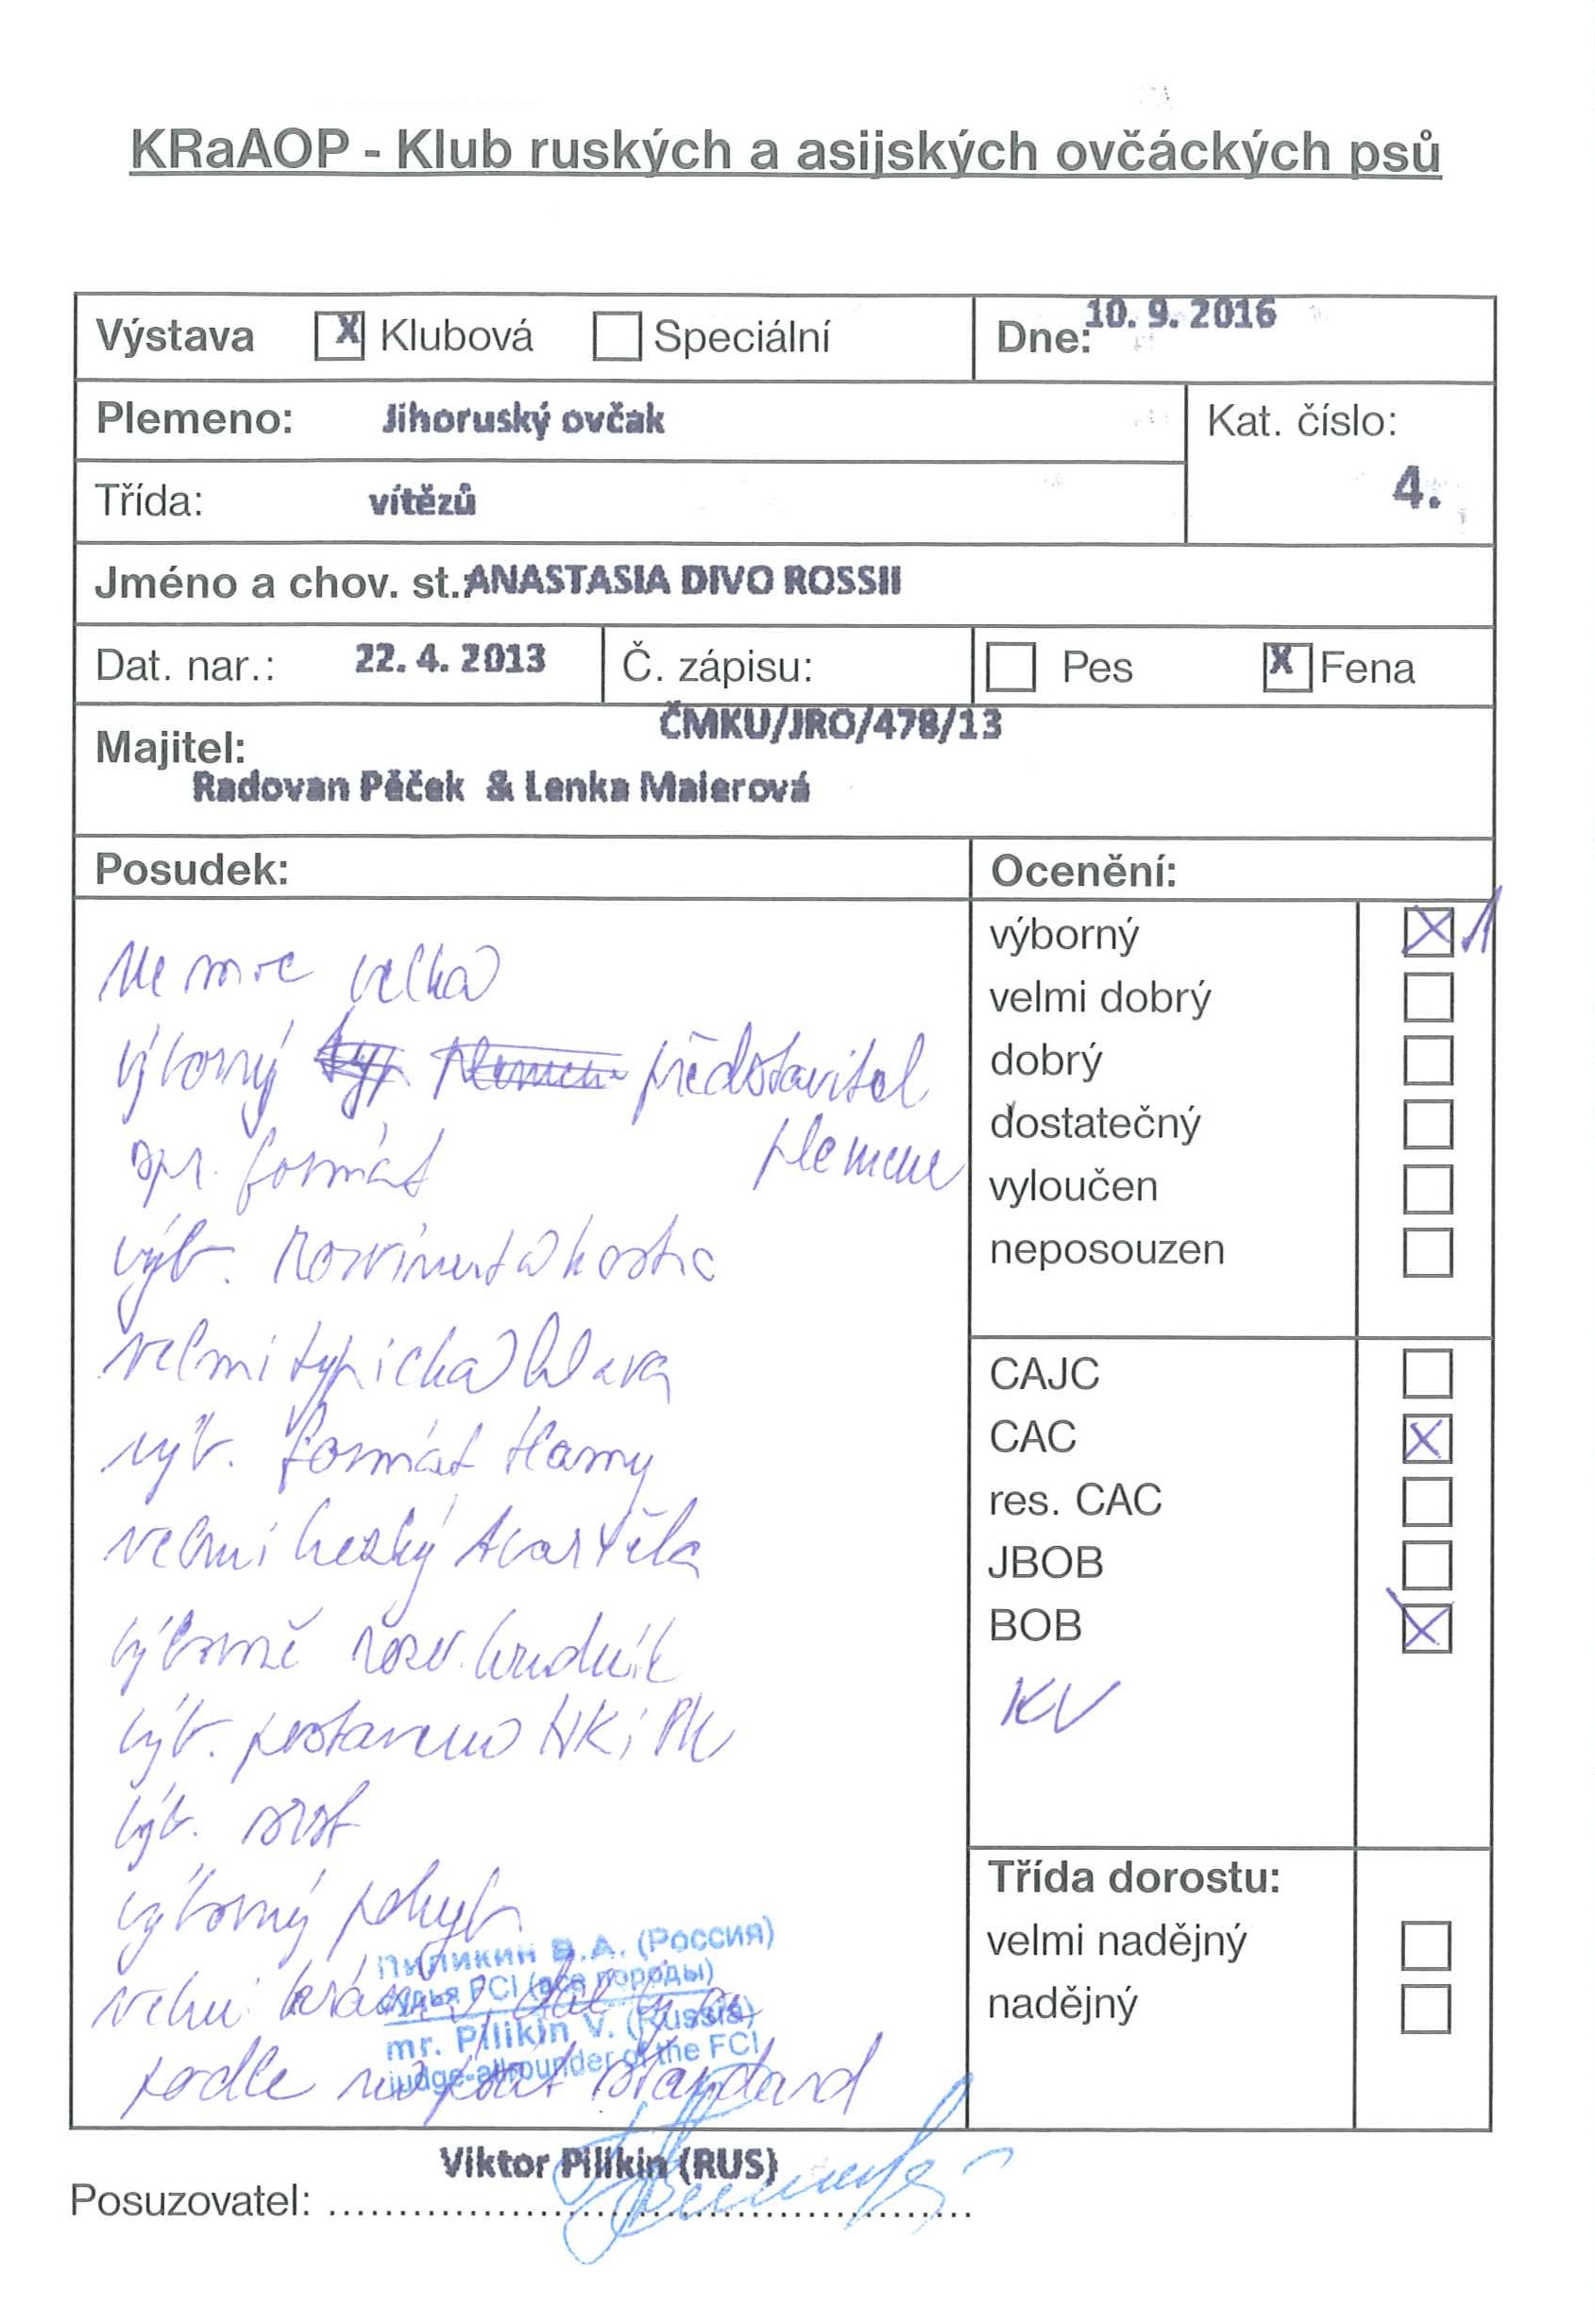 KRaAOP - Klub ruských a asijských ovčáckých psů
Výstava X Klubová Speciální Dne: 10. 9. 2016
Plemeno: Jihoruský ovčak
Kat. číslo: 4.
Třída: vítězů
Jméno a chov. st.: ANASTASIA DIVO ROSSII
Dat. nar.: 22. 4. 2013 Č. zápisu: Pes X Fena
ČMKU/JRO/478/13
Majitel:
Radovan Pěček & Lenka Maierová
Posudek:
velká
výborný představitel
plemene
formát
výb. kostra
velmi typická hlava
výb. formát tlamy
velmi hezký tvar těla
výborně rozv. hrudník
výb. postaveno HK i PK
výb. srst
výborný pohyb
velmi
podle standard
Пиликин В.А. (Россия)
судья FCI (все породы)
mr. Pilikin V. (Russia)
judge-allrounder of the FCI
Ocenění:
výborný X 1
velmi dobrý
dobrý
dostatečný
vyloučen
neposouzen
CAJC
CAC X
res. CAC
JBOB
BOB X
KV
Třída dorostu:
velmi nadějný
nadějný
Viktor Pilikin (RUS)
Posuzovatel: